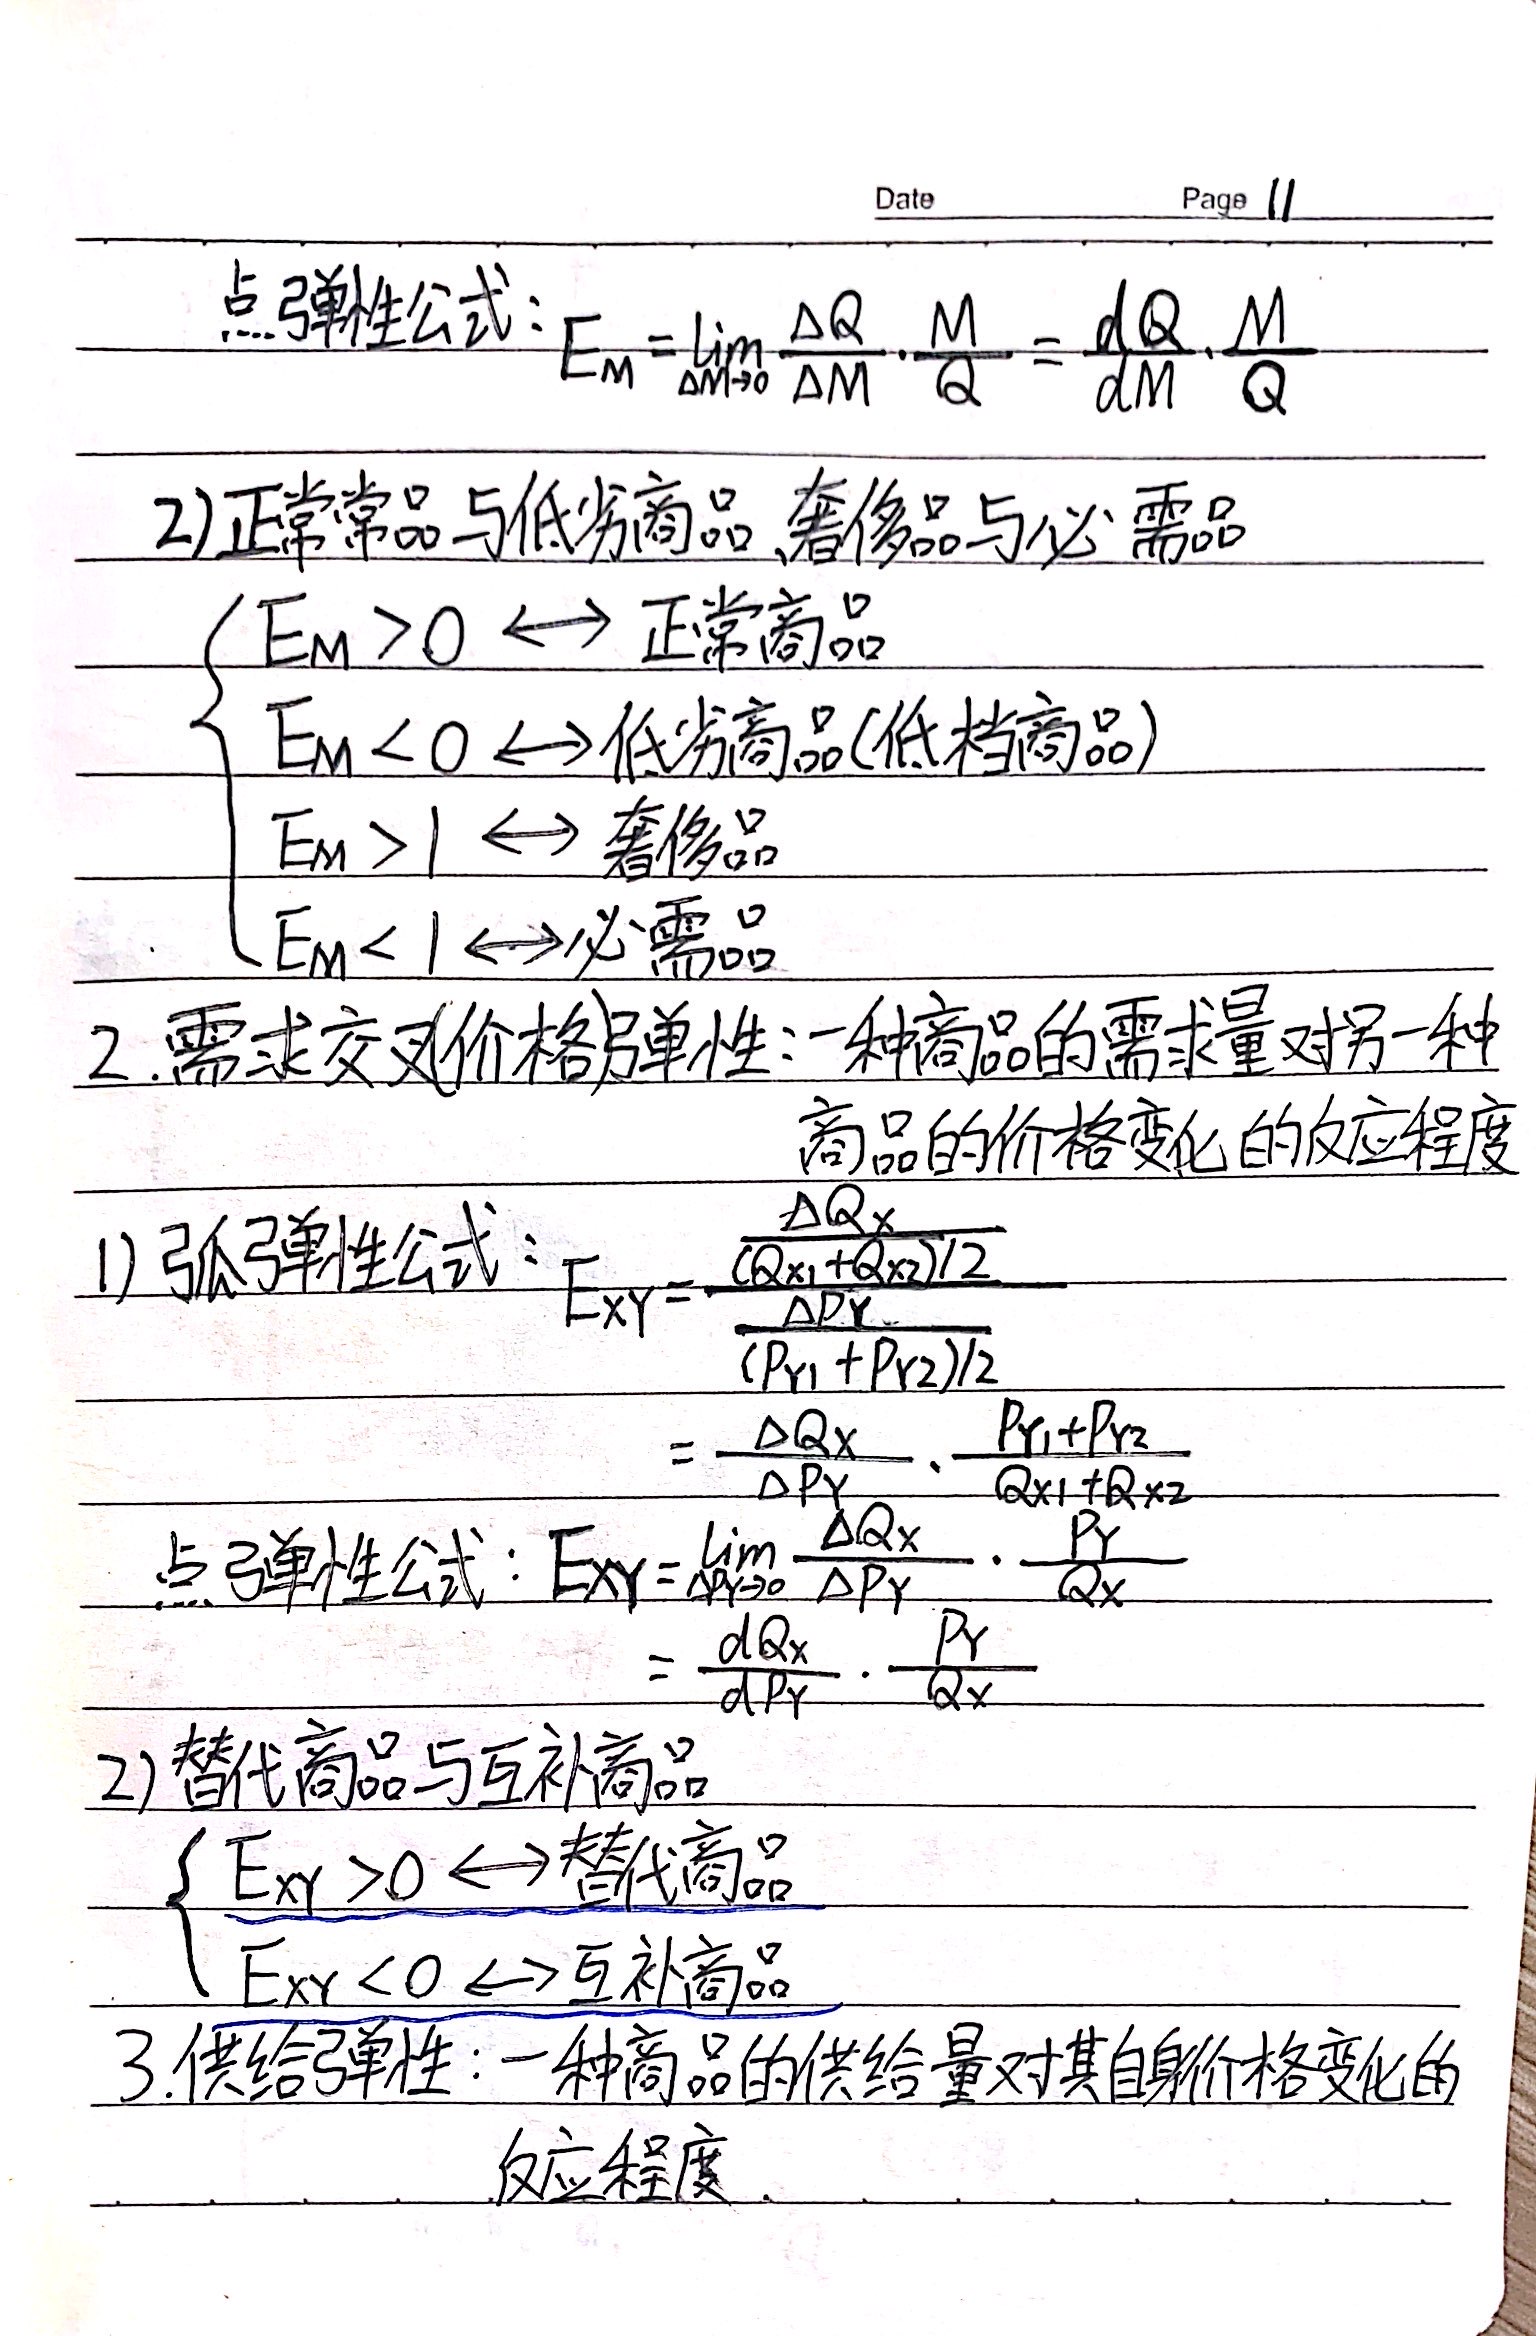 Date Page 11
点弹性公式: E_M = lim_{ΔM→0} ΔQ/ΔM · M/Q = dQ/dM · M/Q
2) 正常常品与低劣商品、奢侈品与必需品
E_M > 0 ↔ 正常商品
E_M < 0 ↔ 低劣商品(低档商品)
E_M > 1 ↔ 奢侈品
E_M < 1 ↔ 必需品
2. 需求交叉(价格)弹性: 一种商品的需求量对另一种
商品的价格变化的反应程度
1) 弧弹性公式: E_XY = (ΔQ_X/((Q_X1+Q_X2)/2)) / (ΔP_Y/((P_Y1+P_Y2)/2))
= ΔQ_X/ΔP_Y · (P_Y1+P_Y2)/(Q_X1+Q_X2)
点弹性公式: E_XY = lim_{ΔP_Y→0} ΔQ_X/ΔP_Y · P_Y/Q_X
= dQ_X/dP_Y · P_Y/Q_X
2) 替代商品与互补商品
E_XY > 0 ↔ 替代商品
E_XY < 0 ↔ 互补商品
3. 供给弹性: 一种商品的供给量对其自身价格变化的
反应程度.